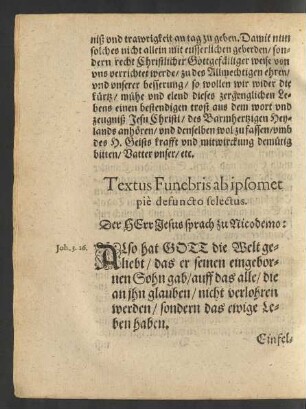 niß und trawrigkeit an tag zu geben. Damit nun
solches nicht allein mit eusserlichen geberden/ son-
dern recht Christlicher Gottgefälliger weise von
uns verrichtet werde/ zu des Allmechtigen ehren/
und unserer besserung/ so wollen wir wider die
kürtz/ mühe und elend dieses zergenglichen Le-
bens einen bestendigen trost aus dem wort und
zeugniß Jesu Christi/ des Barmhertzigen Hey-
lands anhören/ und denselben wol zu fassen/ umb
des H. Geists krafft und mitwirckung demütig
bitten/ Vatter unser/ etc.
Textus Funebris ab ipsomet
piè defuncto selectus.
Der HErr Jesus sprach zu Nicodemo:
Joh. 3. 16.
ALso hat GOTT die Welt ge-
liebt/ das er seinen eingebor-
nen Sohn gab/ auff das alle/ die
an jhn glauben/ nicht verlohren
werden/ sondern das ewige Le-
ben haben.
Einfel-